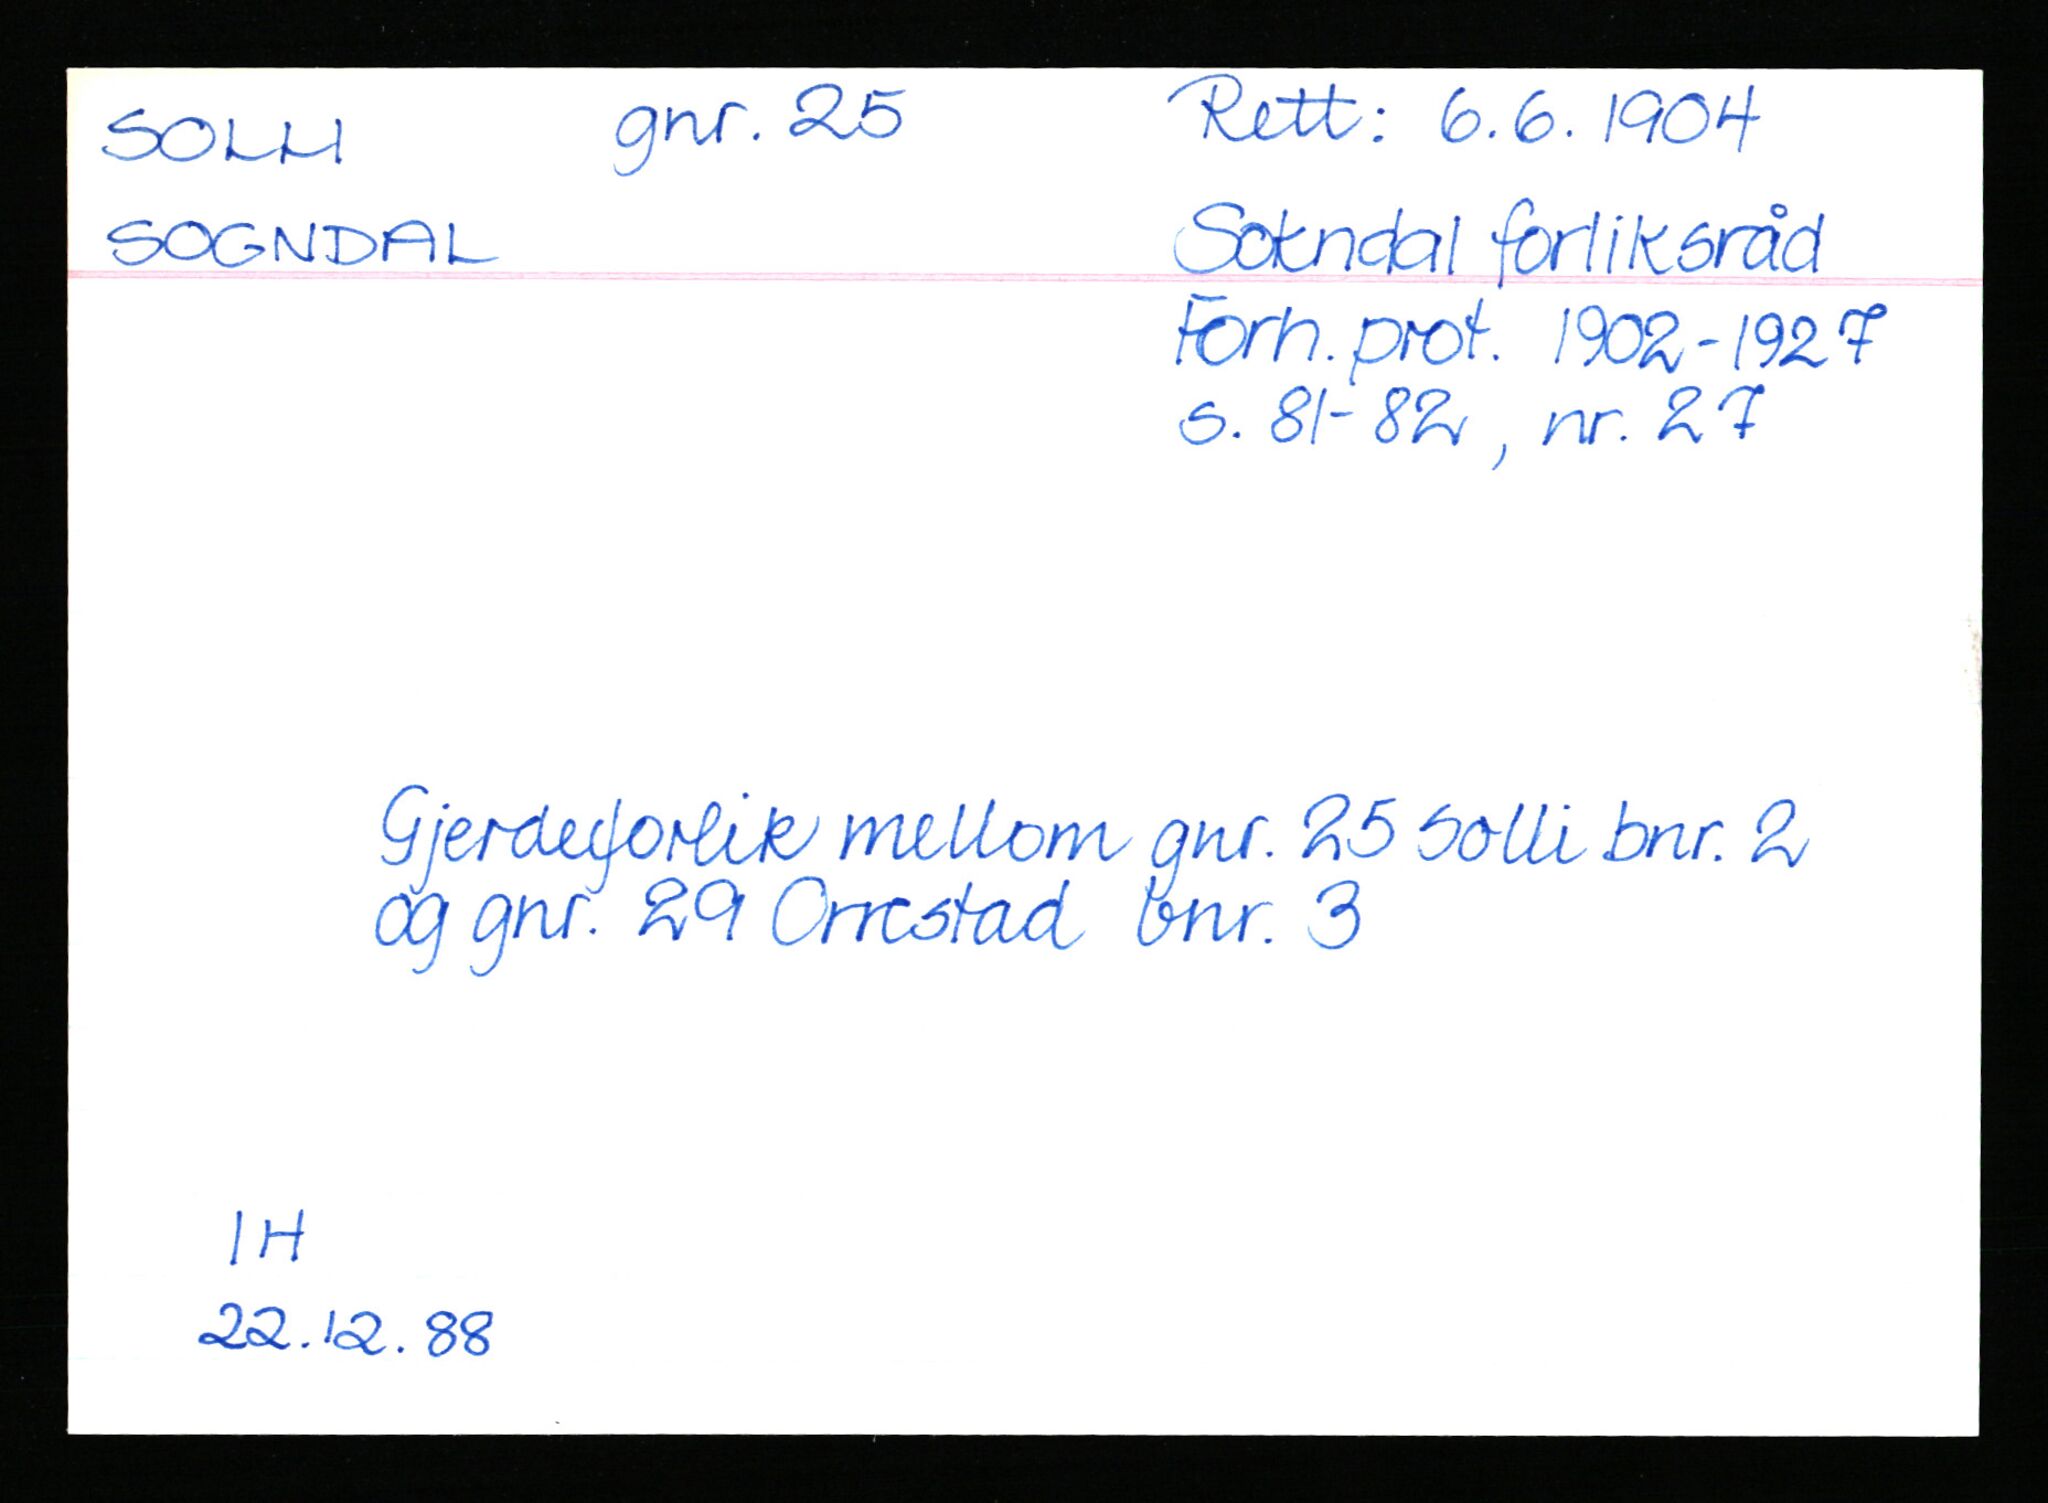 SOLLI gnr. 25 Rett: 6.6.1904
SOGNDAL Sokndal forliksråd
Forh. prot. 1902-1927
s. 81-82, nr. 27
Gjerdeforlik mellom gnr. 25 Solli bnr. 2
og gnr. 29 Orrestad bnr. 3
IH
22.12.88